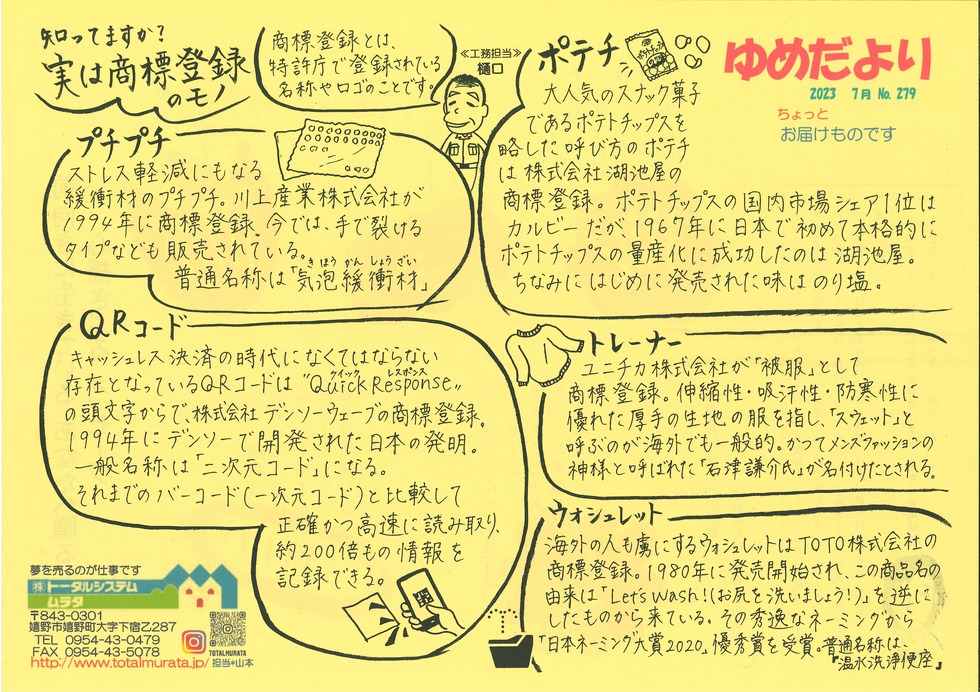 知ってますか?
実は商標登録
のモノ
商標登録とは、
特許庁で登録されている
名称やロゴのことです。
≪工務担当≫
樋口
ゆめだより
2023 7月 No.279
ちょっと
お届けものです
プチプチ
ストレス軽減にもなる
緩衝材のプチプチ。川上産業株式会社が
1994年に商標登録。今では、手で裂ける
タイプなども販売されている。
普通名称は「気泡緩衝材」
きほうかんしょうざい
ポテチ
大人気のスナック菓子
であるポテトチップスを
略した呼び方のポテチ
は株式会社湖池屋の
商標登録。ポテトチップスの国内市場シェア1位は
カルビーだが、1967年に日本で初めて本格的に
ポテトチップスの量産化に成功したのは湖池屋。
ちなみにはじめに発売された味はのり塩。
QRコード
キャッシュレス決済の時代になくてはならない
存在となっているQRコードは"Quick Response"
クイック レスポンス
の頭文字からで、株式会社デンソーウェーブの商標登録。
1994年にデンソーで開発された日本の発明。
一般名称は「二次元コード」になる。
それまでのバーコード(一次元コード)と比較して
正確かつ高速に読み取り、
約200倍もの情報を
記録できる。
トレーナー
ユニチカ株式会社が「被服」として
商標登録。伸縮性・吸汗性・防寒性に
優れた厚手の生地の服を指し、「スウェット」と
呼ぶのが海外でも一般的。かつてメンズファッションの
神様と呼ばれた「石津謙介氏」が名付けたとされる。
ウォシュレット
海外の人も虜にするウォシュレットはTOTO株式会社の
商標登録。1980年に発売開始され、この商品名の
由来は「Let's Wash!(お尻を洗いましょう!)」を逆に
したものから来ている。その秀逸なネーミングから
「日本ネーミング大賞2020」優秀賞を受賞。普通名称は、
『温水洗浄便座』
夢を売るのが仕事です
㈱トータルシステム
ムラタ
〒843-0301
嬉野市嬉野町大字下宿乙287
TEL 0954-43-0479
FAX 0954-43-5078
http://www.totalmurata.jp/
TOTALMURATA
担当*山本